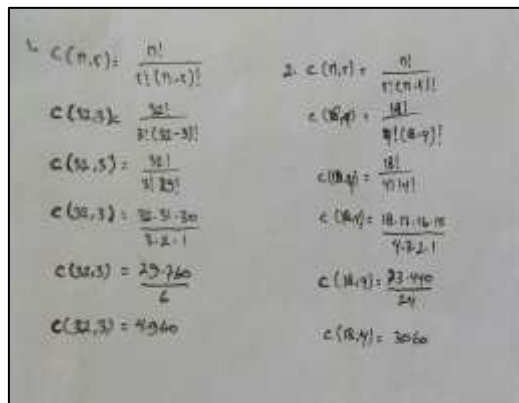 1. C(n,r) = n! / r!(n-r)!
C(32,3) = 32! / 3!(32-3)!
C(32,3) = 32! / 3! 29!
C(32,3) = 32·31·30 / 3·2·1
C(32,3) = 29.760 / 6
C(32,3) = 4960
2. c(n,r) = n! / r!(n-r)!
c(18,4) = 18! / 4!(18-4)!
c(18,4) = 18! / 4! 14!
c(18,4) = 18·17·16·15 / 4·3·2·1
c(18,4) = 73.440 / 24
c(18,4) = 3060